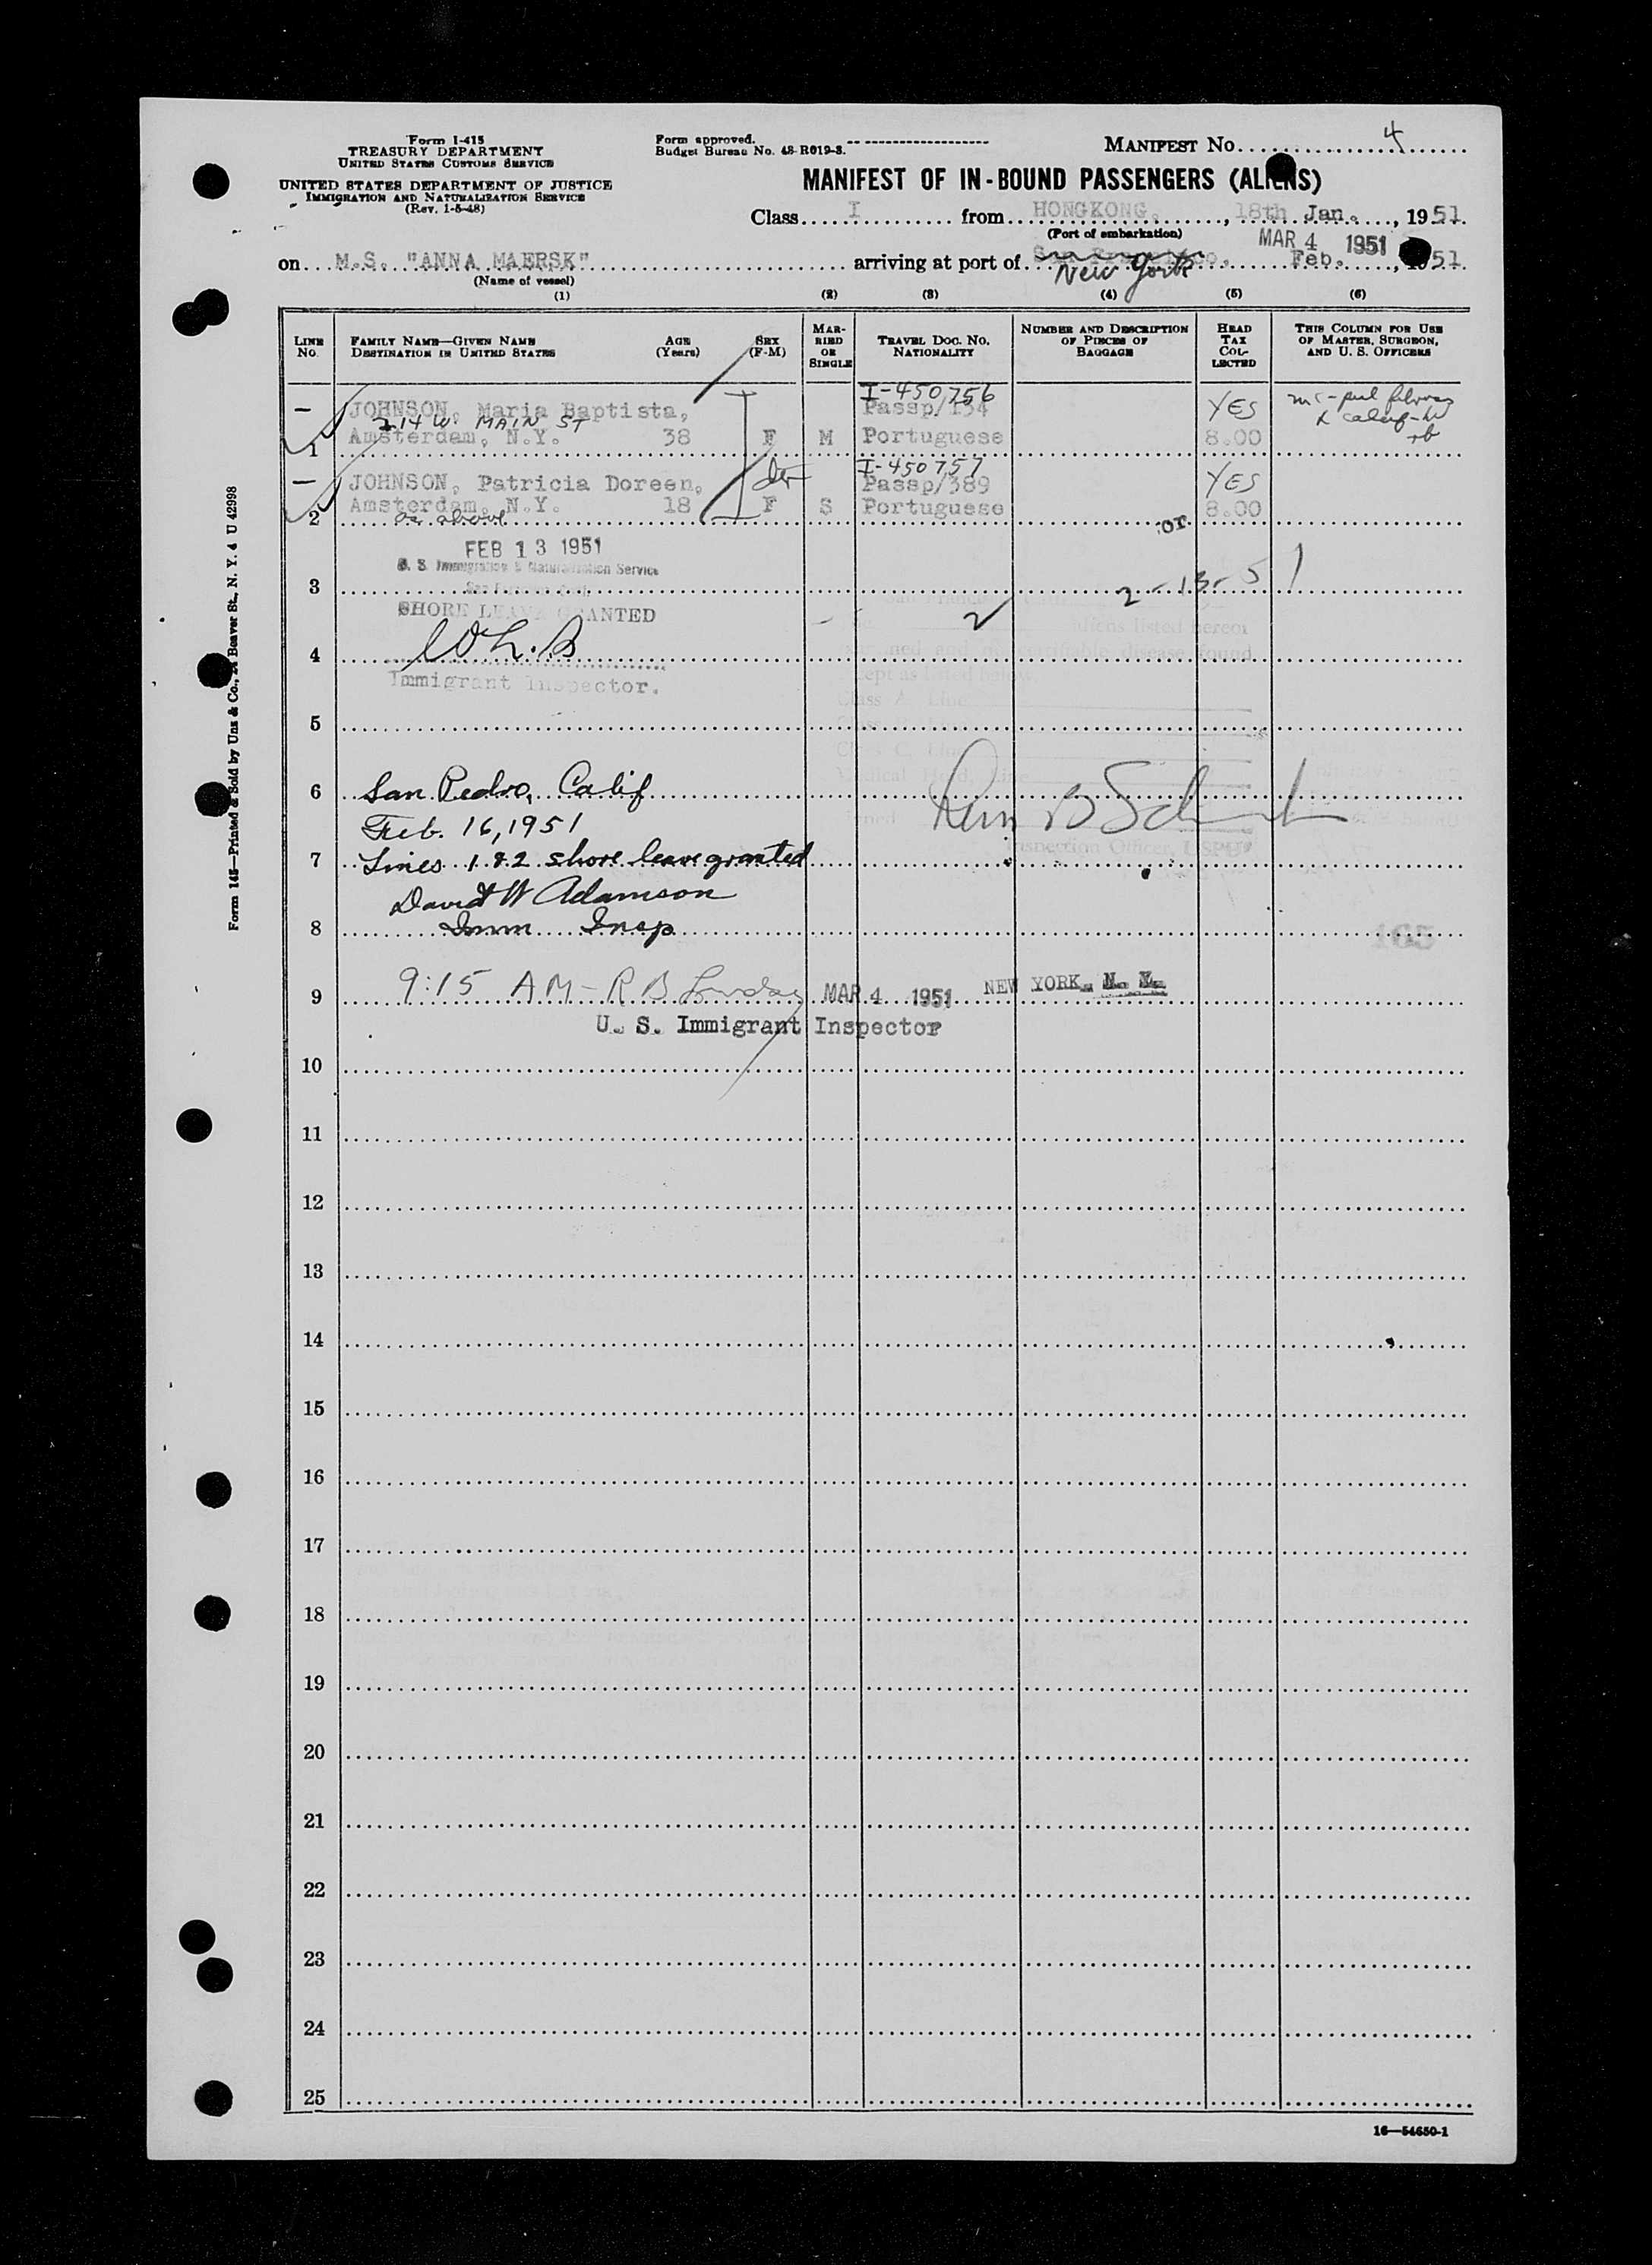 Form I-415
TREASURY DEPARTMENT
UNITED STATES CUSTOMS SERVICE
UNITED STATES DEPARTMENT OF JUSTICE
IMMIGRATION AND NATURALIZATION SERVICE
(Rev. 1-5-48)
Form approved.
Budget Bureau No. 43-R019-3.
MANIFEST No. 4
MANIFEST OF IN-BOUND PASSENGERS (ALIENS)
Class I from HONGKONG, 18th Jan., 1951.
(Port of embarkation)
MAR 4 1951
on M.S. "ANNA MAERSK" arriving at port of San Francisco, Feb., 1951.
New York
(Name of vessel)
(1) (2) (3) (4) (5) (6)
LINE No. FAMILY NAME—GIVEN NAME DESTINATION IN UNITED STATES AGE (Years) SEX (F-M) MARRIED OR SINGLE TRAVEL DOC. NO. NATIONALITY NUMBER AND DESCRIPTION OF PIECES OF BAGGAGE HEAD TAX COLLECTED THIS COLUMN FOR USE OF MASTER, SURGEON, AND U. S. OFFICERS
I-450756
JOHNSON, Maria Baptista, Passp/134 YES
214 W. MAIN ST
1 Amsterdam, N.Y. 38 F M Portuguese 8.00
I-450757
JOHNSON, Patricia Doreen, Passp/389 YES
2 Amsterdam, N.Y. 18 F S Portuguese 8.00
as above
FEB 13 1951
U. S. Immigration & Naturalization Service
3 2-13-51
SHORE LEAVE GRANTED
2
aliens listed hereon
4
disease found
Immigrant Inspector.
except as listed below
Class A, Line
5
Class C, Line
Medical Hold, Line
6 San Pedro, Calif
Feb. 16, 1951
7 Lines 1 & 2 shore leave granted
Inspection Officer, USPHS
David W Adamson
8 Imm Insp
9 9:15 AM - R B MAR 4 1951 NEW YORK, N. Y.
U. S. Immigrant Inspector
10
11
12
13
14
15
16
17
18
19
20
21
22
23
24
25
16—54650-1
Form 145—Printed & Sold by Unz & Co., Beaver St., N. Y. 4 U 42998